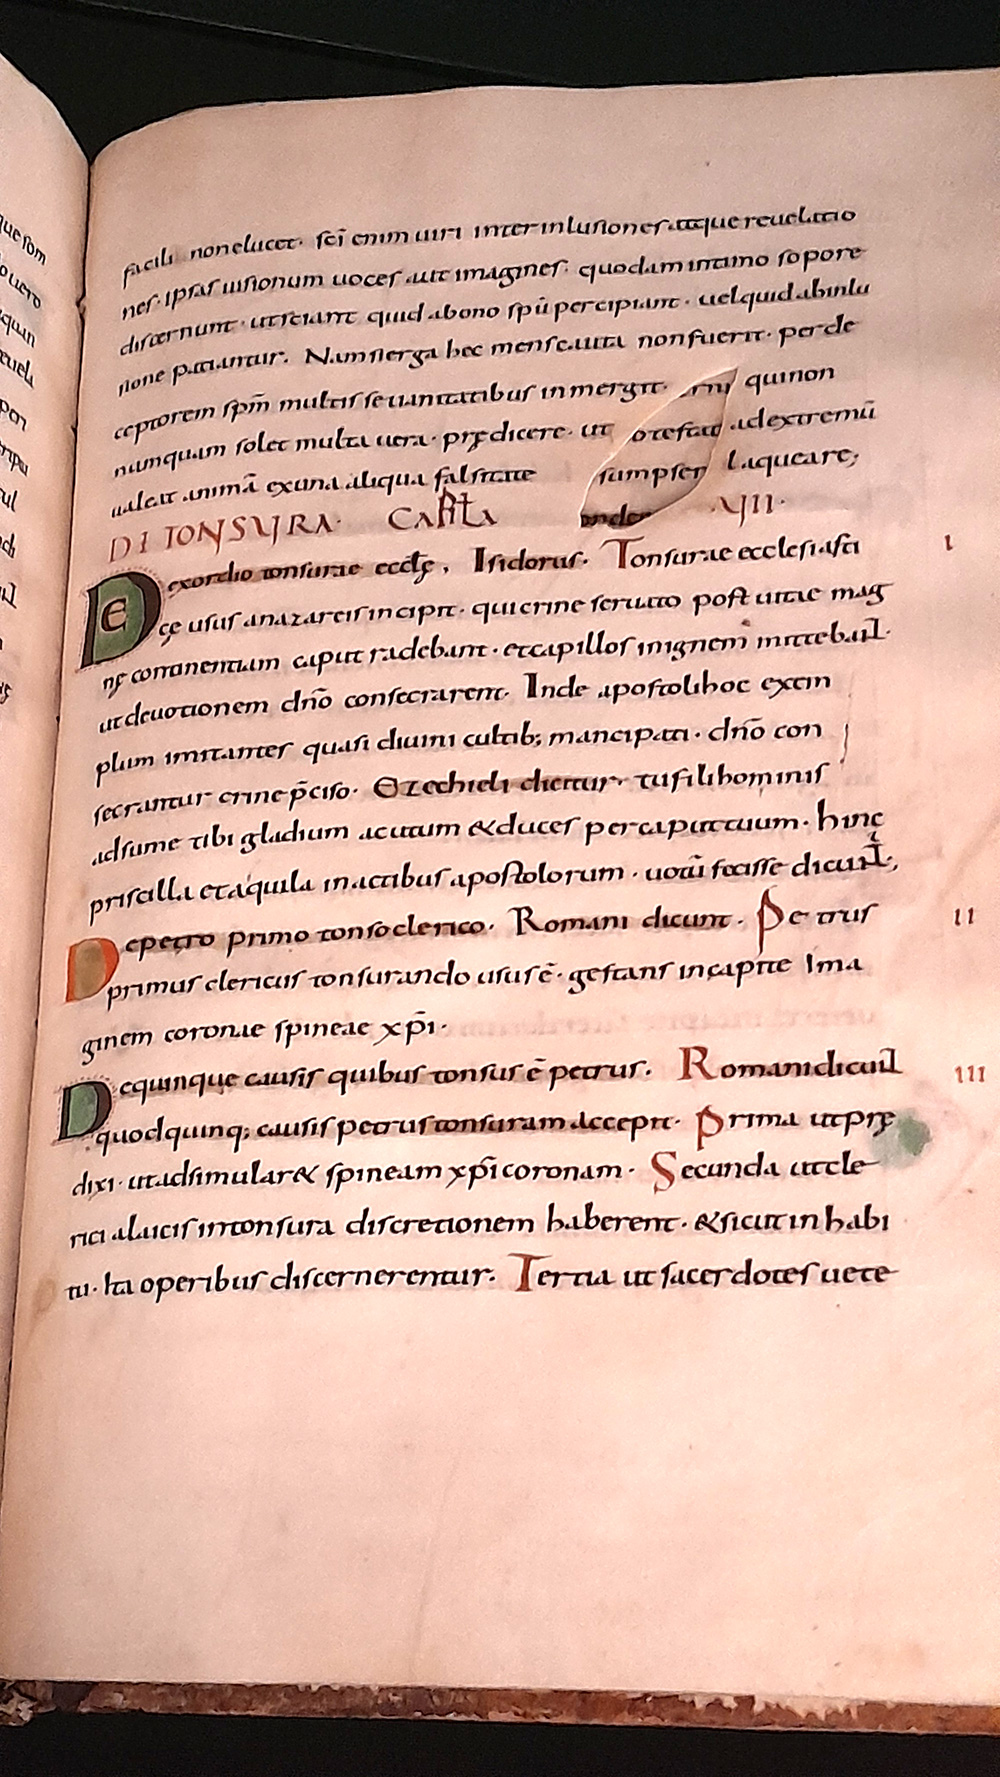 que som
facili non elucet· sci enim uiri inter inlusiones atque reuelatio
nes· ipsas uisionum uoces aut imagines· quodam intimo sopore
discernunt· ut sciant quid a bono spu percipiant· uel quid ab inlu
sione patiantur. Nam si erga hec mens cauta non fuerit· per de
ceptorem spm multis se uanitatibus inmergit· qui non
numquam solet multa uera· prędicere· ut ad extremū
ualeat animā ex una aliqua falsitate laqueare;
DE TONSURA· CAPITLA VII·
De exordio tonsurae eccle, Isidorus. Tonsurae ecclesiasti I
cę usus a nazareis incipit· qui crine seruato post uitae mag
nę continentiam caput radebant· et capillos in ignem mittebant·
ut deuotionem dn̄o consecrarent· Inde apostoli hoc exem
plum imitantes quasi diuini cultib; mancipati· dn̄o con
secrantur crine p̄ciso· Ezechieli dicitur· tu fili hominis
adsume tibi gladium acutum & duces per caput tuum· hinc
priscilla et aquila in actibus apostolorum· uotū fecisse dicunt·,
De petro primo tonso clerico· Romani dicunt· Petrus II
primus clericus tonsurando usus ē· gestans in capite Ima
ginem coronae spineae xp̄i·
De quinque causis quibus tonsus ē petrus. Romani dicunt III
quod quinq; causis petrus tonsuram accepit· Prima ut prę
dixi· ut adsimular& spineam xp̄i coronam· Secunda ut cle
rici a laicis in tonsura discretionem haberent· & sicut in habi
tu· Ita operibus discernerentur. Tertia ut sacerdotes uete